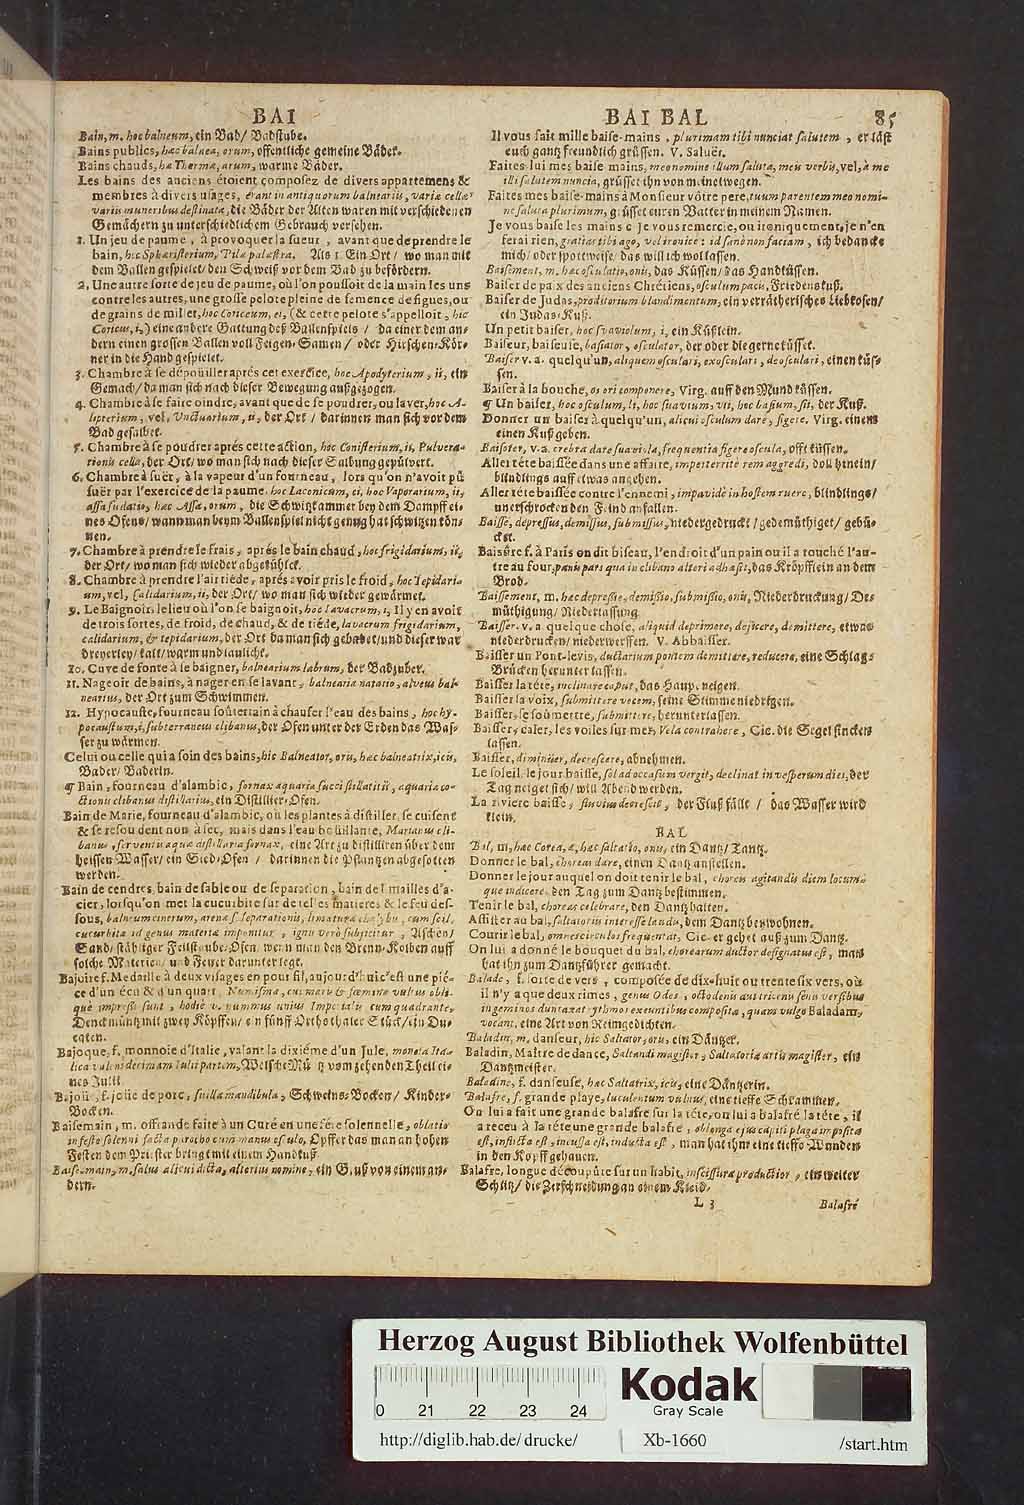 BAI
Bain, m. hoc balneum, ein Bad/ Badstube.
Bains publics, hæc balnea, orum, offentliche gemeine Bäder.
Bains chauds, hæ Thermæ, arum, warme Bäder.
Les bains des anciens étoient composez de divers appartemens &
membres à divers usages, erant in antiquorum balneariis, variæ cellæ
variis muneribus destinatæ, die Bäder der Alten waren mit verschiedenen
Gemächern zu unterschiedlichem Gebrauch versehen.
1. Un jeu de paume, à provoquer la sueur, avant que de prendre le
bain, hic Sphæristerium, Pilæ palæstra. Als 1. Ein Ort/ wo man mit
dem Ballen gespielet/ den Schweiß vor dem Bad zu befördern.
2. Une autre sorte de jeu de paume, où l'on poussoit de la main les uns
contre les autres, une grosse pelote pleine de semence de figues, ou
de grains de millet, hoc Coriceum, ei, (& cette pelote s'appelloit, hic
Coricus, i,) eine andere Gattung deß Ballenspiels / da einer dem an-
dern einen grossen Ballen voll Feigen-Samen / oder Hirschen-Kör-
ner in die Hand gespielet.
3. Chambre à se dépouiller aprés cet exercice, hoc Apodyterium, ii, ein
Gemach/ da man sich nach dieser Bewegung außgezogen.
4. Chambre à se faire oindre, avant que de se poudrer, ou laver, hoc A-
lipterium, vel, Unctuarium, ii, der Ort / darinnen man sich vor dem
Bad gesalbet.
5. Chambre à se poudrer aprés cette action, hoc Conisterium, ii, Pulvera-
tionis cella, der Ort/ wo man sich nach dieser Salbung gepülvert.
6. Chambre à suër, à la vapeur d'un fourneau, lors qu'on n'avoit pû
suër par l'exercice de la paume, hoc Laconicum, ci, hoc Vaporarium, ii,
assa sudatio, hæc Assa, orum, die Schwitzkammer bey dem Dampff ei-
nes Ofens/ wann man beym Ballenspiel nicht genug hat schwitzen kön-
nen.
7. Chambre à prendre le frais, aprés le bain chaud, hoc frigidarium, ii,
der Ort/ wo man sich wieder abgekühlet.
8. Chambre à prendre l'air tiéde, aprés avoir pris le froid, hoc Tepidari-
um, vel, Calidarium, ii, der Ort/ wo man sich wieder gewärmet.
9. Le Baignoir, le lieu où l'on se baignoit, hoc Lavacrum, i, Il y en avoit
de trois sortes, de froid, de chaud, & de tiéde, lavacrum frigidarium,
calidarium, & tepidarium, der Ort da man sich gebadet/ und dieser war
dreyerley/ kalt/ warm und laulicht.
10. Cuve de fonte à se baigner, balnearium labrum, der Badzuber.
11. Nageoir de bains, à nager en se lavant, balnearia natatio, alveus bal-
nearius, der Ort zum Schwimmen.
12. Hypocauste, fourneau soûterrain à chaufer l'eau des bains, hoc hy-
pocaustum, i, subterraneus clibanus, der Ofen unter der Erden das Was-
ser zu wärmen.
Celui ou celle qui a soin des bains, hic Balneator, oris, hæc balneatrix, icis,
Bader/ Baderin.
¶ Bain, fourneau d'alambic, fornax aquaria succi stillatitii, aquaria co-
ctionis clibanus distillarius, ein Distillier-Ofen.
Bain de Marie, fourneau d'alambic, où les plantes à distiller, se cuisent
& se resoudent non à sec, mais dans l'eau boüillante, Marianus cli-
banus, ferventis aquæ distillaria fornax, eine Art zu distilliren über dem
heissen Wasser/ ein Sied-Ofen / darinnen die Pflantzen abgesotten
werden.
Bain de cendres, bain de sable ou de separation, bain de limailles d'a-
cier, lorsqu'on met la cucurbite sur de telles matieres & le feu des-
sous, balneum cinerum, arenæ separationis, limaturæ chalybis, cum scil.
cucurbita id genus materiæ imponitur, ignis verò subjicitur, Aschen/
Sand/ stähliger Feilstaube-Ofen, wenn man den Brenn-Kolben auff
solche Materien/ und Feuer darunter legt.
Bajoire f. Medaille à deux visages en pourfil, aujourd'hui c'est une pié-
ce d'un écu & d'un quart, Numisma, cui maris & fœminæ vultus obli-
què impressi sunt, hodiè v. nummus unius Imperialis cum quadrante,
Denckmüntz mit zwey Köpffen/ ein fünff Orthsthaler Stück/ ein Du-
caten.
Bajoque, f. monnoie d'Italie, valant la dixiéme d'un Jule, moneta Ita-
lica valens decimam Iulii partem, Welsche Müntz vom zehenden Theil ei-
nes Julii.
Bajoüe, f. joüe de porc, suilla mandibula, Schweins-Backen/ Kinder-
Backen.
Baisemain, m. offrande faite à un Curé en une fête solennelle, oblatio
in festo solenni facta parocho cum manus osculo, Opffer das man an hohen
Festen dem Priester bringt mit einem Handkuß.
Baise-main, m. salus alicui dicta, alterius nomine, ein Gruß von einem an-
dern.
BAI BAL 85
Il vous fait mille baise-mains, plurimam tibi nunciat salutem, er läst
euch gantz freundlich grüssen. V. Saluër.
Faites-lui mes baise-mains, meo nomine illum saluta, meis verbis, vel, à me
illi salutem nuncia, grüsset ihn von meinetwegen.
Faites mes baise-mains à Monsieur vôtre pere, tuum parentem meo nomi-
ne saluta plurimum, grüsset euren Vatter in meinem Namen.
Je vous baise les mains c. Je vous remercie, ou ironiquement, je n'en
ferai rien, gratias tibi ago, vel ironicè: id sanè non faciam, ich bedancke
mich/ oder spottweise/ das will ich wol lassen.
Baisement, m. hæc osculatio, onis, das Küssen/ das Handküssen.
Baiser de paix des anciens Chrétiens, osculum pacis, Friedenskuß.
Baiser de Judas, proditorium blandimentum, ein verrätherisches Liebkosen/
ein Judas-Kuß.
Un petit baiser, hoc svaviolum, i, ein Küßlein.
Baiseur, baiseuse, basiator, osculator, der oder die gerne küsset.
Baiser v. a. quelqu'un, aliquem osculari, exosculari, deosculari, einen küs-
sen.
Baiser à la bouche, os ori componere, Virg. auff den Mund küssen.
¶ Un baiser, hoc osculum, li, hoc suavium, vii, hoc basium, sii, der Kuß.
Donner un baiser à quelqu'un, alicui osculum dare, figere. Virg. einem
einen Kuß geben.
Baisoter, v. a. crebra dare suaviola, frequentia figere oscula, offt küssen.
Aller tête baissée dans une affaire, imperterritè rem aggredi, doll hinein/
blindlings auff etwas angehen.
Aller tête baissée contre l'ennemi, impavidè in hostem ruere, blindlings/
unerschrocken den Feind anfallen.
Baissé, depressus, demissus, submissus, niedergedruckt/ gedemüthiget/ gebü-
cket.
Baisêre f. à Paris on dit biseau, l'endroit d'un pain ou il a touché l'au-
tre au four, panis pars qua in clibano alteri adhæsit, das Kröpfflein an dem
Brod.
Baissement, m. hæc depressio, demissio, submissio, onis, Niederdruckung/ De-
müthigung/ Niederlassung.
Baisser. v. a. quelque chose, aliquid deprimere, dejicere, demittere, etwas
niederdrucken/ niederwerffen. V. Abbaisser.
Baisser un Pont-levis, ductarium pontem demittere, reducere, eine Schlag-
Brücken herunter lassen.
Baisser la tête, inclinare caput, das Haupt neigen.
Baisser la voix, submittere vocem, seine Stimme niedrigen.
Baisser, se soûmettre, submittere, herunterlassen.
Baisser, caler, les voiles sur mer, Vela contrahere, Cic. die Segel sincken
lassen.
Baisser, diminüer, decrescere, abnehmen.
Le soleil, le jour baisse, sol ad occasum vergit, declinat in vesperum dies, der
Tag neiget sich/ will Abend werden.
La riviere baisse, fluvius decrescit, der Fluß fälle / das Wasser wird
klein.
BAL
Bal, m. hæc Corea, æ, hæc saltatio, onis, ein Dantz/ Tantz.
Donner le bal, choreas dare, einen Dantz anstellen.
Donner le jour auquel on doit tenir le bal, choreis agitandis diem locum-
que indicere, den Tag zum Dantz bestimmen.
Tenir le bal, choreas celebrare, den Dantz halten.
Assister au bal, saltatoriis interesse laudis, dem Dantz beywohnen.
Courir le bal, omnes circulos frequentat, Cic. er gehet auß zum Dantz.
On lui a donné le bouquet du bal, chorearum ductor designatus est, man
hat ihn zum Dantzführer gemacht.
Balade, f. sorte de vers, composée de dix-huit ou trente six vers, où
il n'y a que deux rimes, genus Odes, octodenis aut tricenis senis versibus
in geminos duntaxat rythmos exeuntibus composita, quam vulgò Baladam,
vocant, eine Art von Reimgedichten.
Baladin, m. danseur, hic Saltator, oris, ein Däntzer.
Baladin, Maître de dance, Saltandi magister, Saltatoriæ artis magister, ein
Dantzmeister.
Baladine, f. danseuse, hæc Saltatrix, icis, eine Däntzerin.
Balafre, f. grande playe, luculentum vulnus, eine tieffe Schrammen.
On lui a fait une grande balafre sur la tête, on lui a balafré la tête, il
a receu à la tête une grande balafre, oblonga ejus capiti plaga imposita
est, inflicta est, incussa est, inducta est, man hat ihm eine tieffe Wunden
in den Kopff gehauen.
Balafre, longue découpûre sur un habit, inscissuræ productior, ein weiter
Schlitz/ die Zerschneidung an einem Kleid.
L 3 Balafré
Herzog August Bibliothek Wolfenbüttel
0 21 22 23 24
Kodak
Gray Scale
http://diglib.hab.de/drucke/ Xb-1660 /start.htm